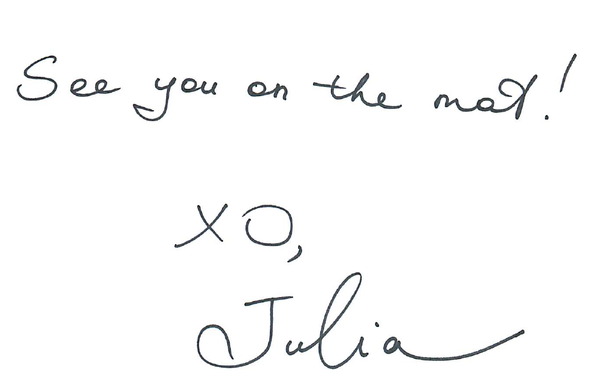 See you on the mat!
XO,
Julia